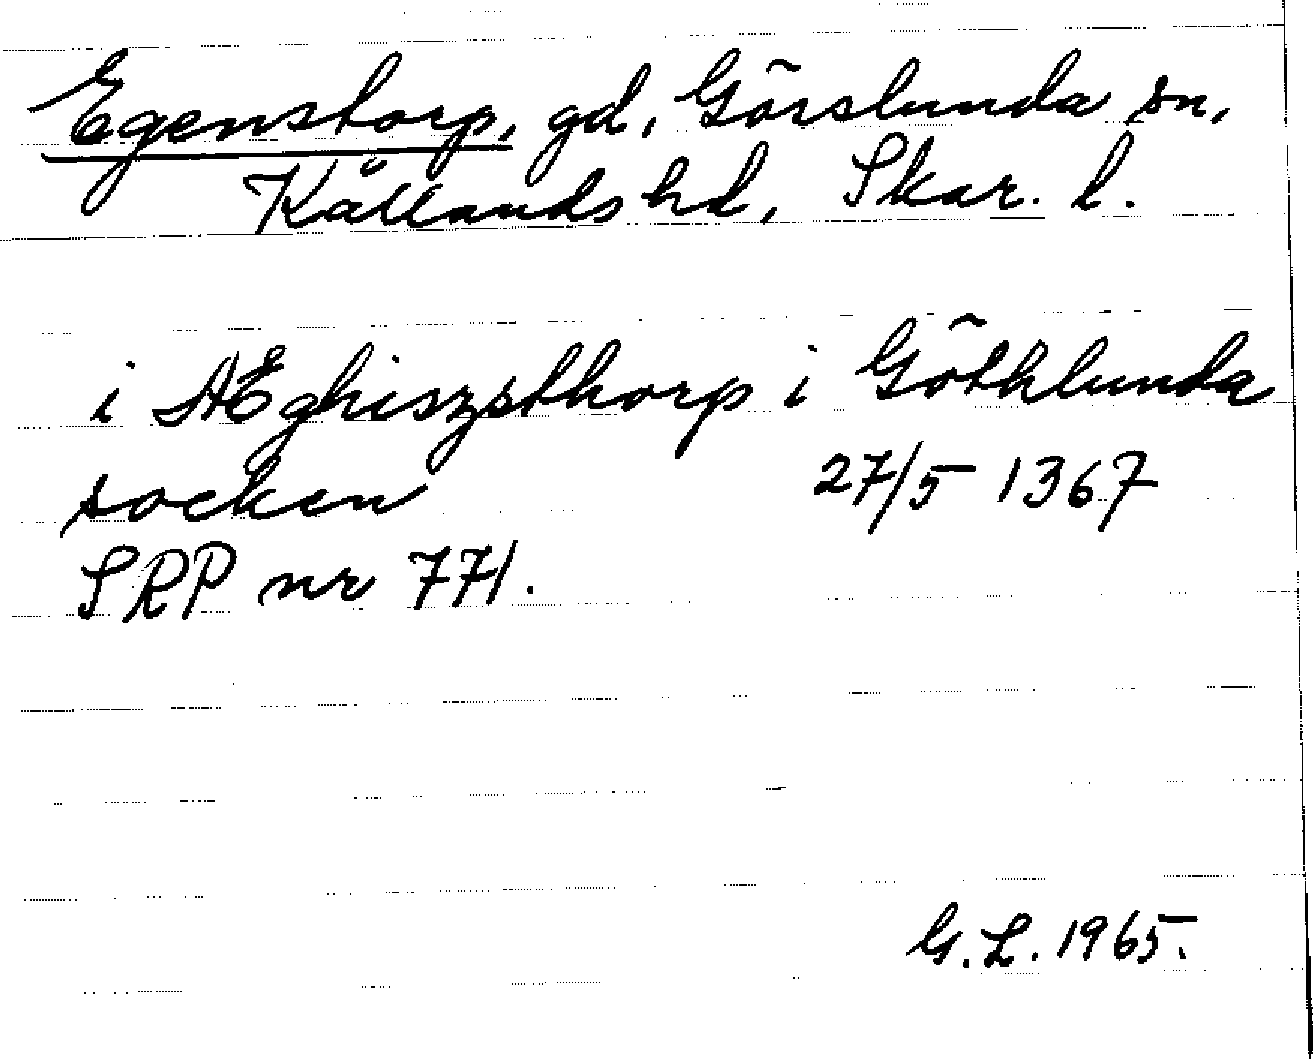 Egenstorp, gd, Görslunda sn,
Kållands hd, Skar. l.
i AEghiszsthorp i Göthlunda
socken 27/5 1367
SRP nr 771.
G. L. 1965.